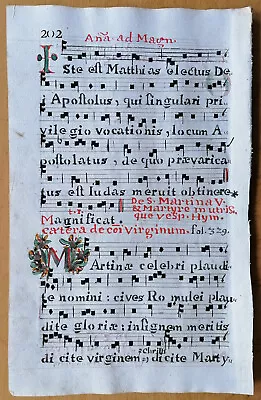 202
Aña. ad Magn.
Iste est Matthias electus De
i Apostolus, qui singulari pri
vilegio vocationis, locum A
postolatus, de quo prævarica
tus est Iudas meruit obtinere
De S. Martina V.
& Martyre
que vesp. Hym.
Magnificat.
cætera de coi Virginum. fol. 329.
Martinæ celebri plaudi
te nomini: cives Romulei plau
dite gloriæ: insignem meritis
dicite virginem; dicite Marty
Christi